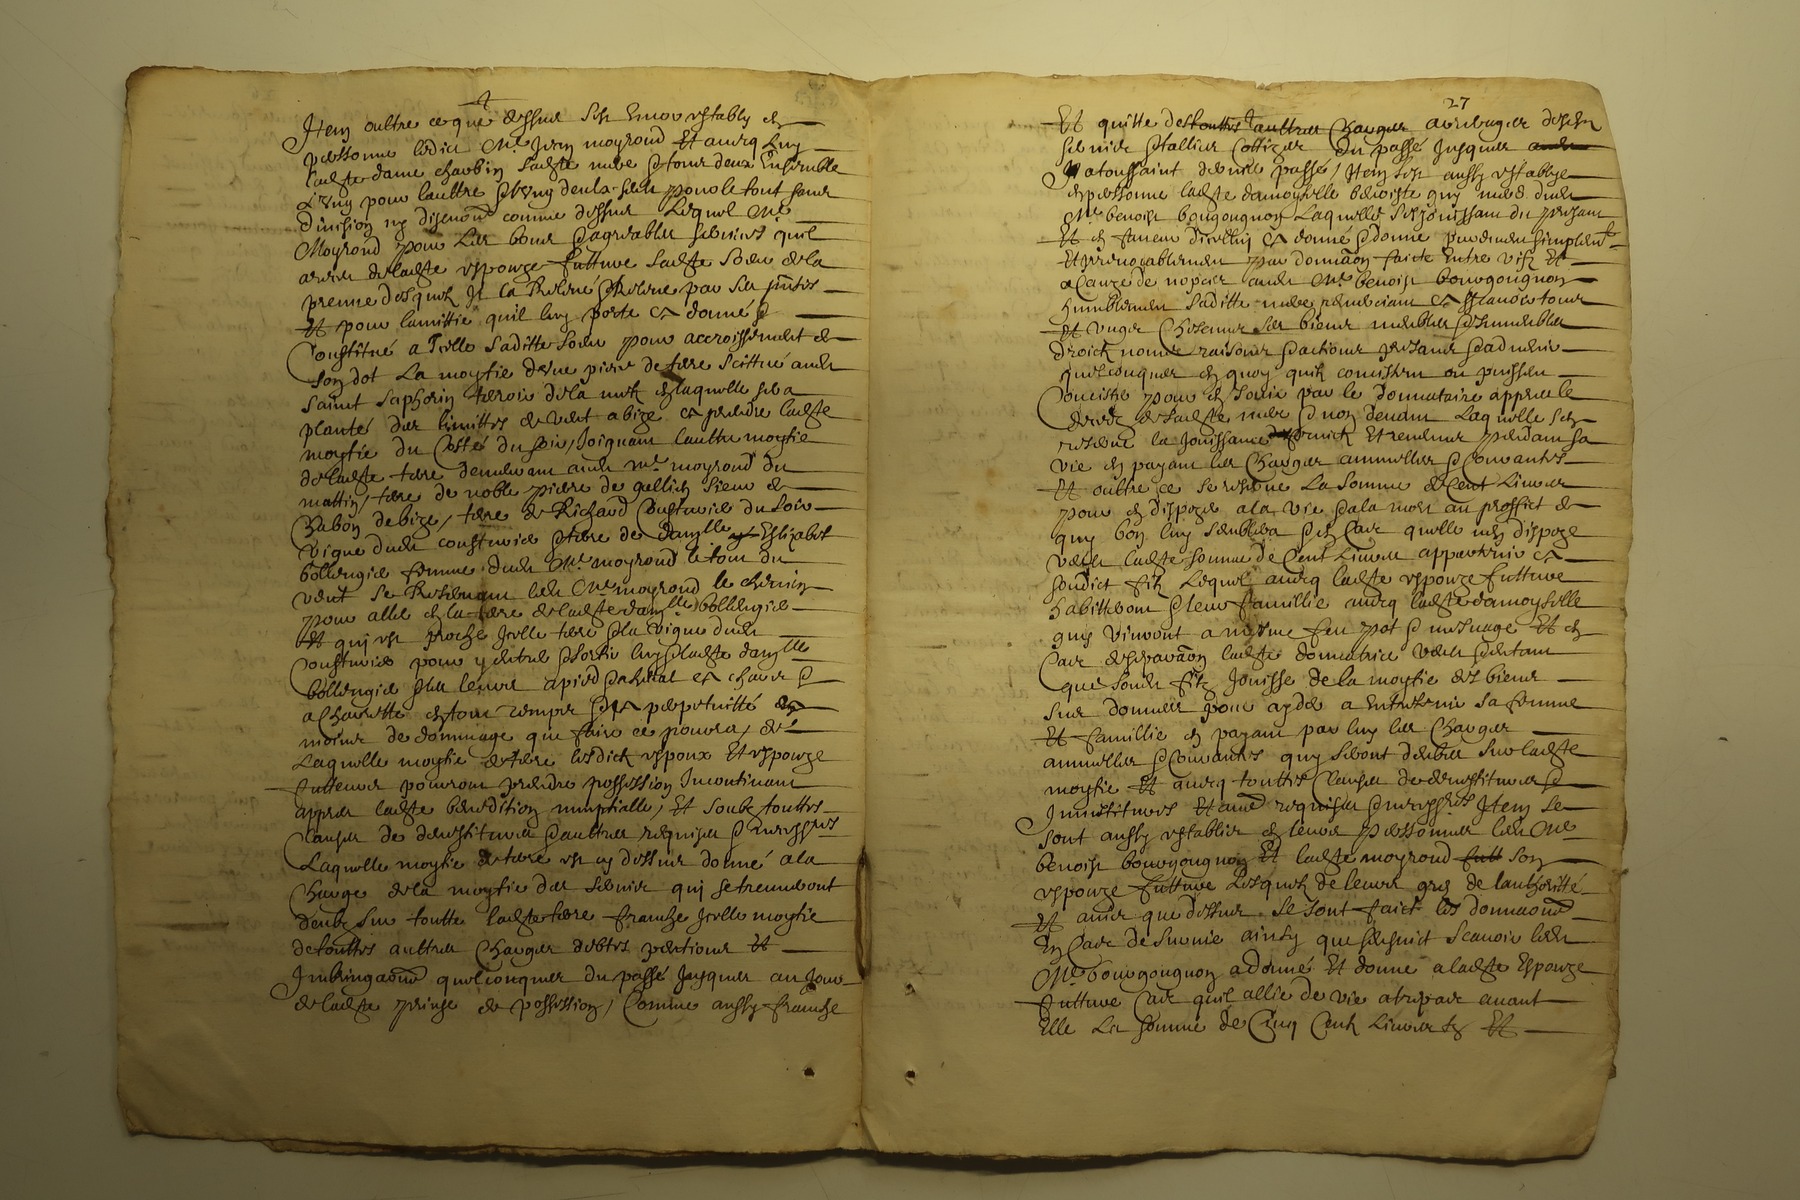 Item oultre ce que dessus s'est encor establly en
personne ledict Me Jean moyroud Et avecq luy
ladicte dame charbin sadicte mere et tous deux Ensemble
L'ung pour laultre et lung deulx seul pour le tout sans
division ny discution comme dessus Lequel Me
Moyroud pour Les bons et agreables services quil
a receu de ladicte espouze futture sadicte soeur de la
preuve desquels Il la Releve et Releve par ses pntes
Et pour lamittié quil luy porte a donné et
Constitué a Icelle saditte soeur pour accroissement de
son dot La moytie d'une piece de terre scittué audit
Saint Saphorin terroir de la
planté des limittes de vent a bize a prendre ladicte
moytie du Costé du soir, Joignant laultre moytie
de ladicte terre demeurant audit Me moyroud du
mattin, terre de noble pierre de gallien sieur de
Chabon de bize, terre de Richard Cousturier du soir
vigne dudit cousturier et terre de damlle Eslizabet
bollengier femme dudit Me moyroud le tout du
vent se Reservant ledit Me moyroud le chemin
pour aller en la terre de ladicte damlle bollengier
Et qui est proche Icelle terre et la vigne dudit
Cousturier pour y entrer et sortir luy et ladicte damlle
bollengier et les leurs a pied et a cheval a chars et
a Charrette en tout temps et a perpetuitté au
moings de dommage que faire ce pourra, de
Laquelle moytie de terre lesdicts espoux Et espouze
futteurs pourront prendre possession Incontinant
appres ladicte benediction nuptialle, Et soubz touttes
clauses de devestiture et aultres requises et necessres
Laquelle moytie de terre est cy dessus donné a la
Charge de la moytie des servis qui se treuveront
deubz sur toutte ladicte terre franche Icelle moytie
de touttes aultres Charges debtes pentions Et
quelconques du passé Jusques au Jour
de ladicte prinse de possession, Comme aussy franche
27
Et quitte des touttes aultres Charges arrerages desdits
servis et tallies cottizes du passé Jusques
la toussaint dernier passé, Item s'est aussy establye
en personne ladicte damoyselle benoiste mere dudit
Me benoist bourgougnon Laquelle s'esjouissant du presant
Et en faveur d'icelluy a donné et donne purement simplement
Et irrevocablement par donnaon faicte Entre vifs Et
a Cauze de nopces audit Me benoist bourgougnon
humblement saditte mere remerciant a scavoir tous
Et ungs Chescungs ses biens meubles et Immeubles
droicts noms raisons et actions presans et advenir
quelconques en quoy quilz consistent ou puissent
Consister pour en Jouir par le donnataire appres le
deces de sadicte mere et non devant Laquelle s'en
reserve la Jouissance fruicts Et revenus pendant sa
vie en payant les Charges annuelles et Courantes
Et oultre ce se reserve La somme de Cent Livres
pour en dispozer a la vie et a la mort au proffict de
quy bon luy semblera et en Cas quelle nen dispoze
veult ladicte somme de Cent Livres appartenir a
sondict filz Lequel avecq ladicte espouze futture
habitteront et leur famillie avecq ladicte damoyselle
quis vivront a mesme feu pot et mesnage Et en
Cas de separaon ladicte donnatrice veult et entant
que sondit filz Jouisse de la moytie des biens
sus donnes pour ayder a Entretenir sa femme
Et famillie en payant par luy les Charges
annuelles et Courantes quy seront deubes sur ladicte
moytie Et avecq touttes Clauses de devestitures et
Investitures Et aultres requises et necessres Item se
sont aussy establies en leurs personnes ledit Me
benoist bourgougnon Et ladicte moyroud futt son
espouze futture Lesquels de leurs grez de lauthoritté
Et advis que dessus se sont faict les donnaons
En Cas de survie ainsy que sensuict scavoir ledit
Me bourgougnon a donné Et donne a ladicte Espouze
futture Cas quil allie de vie a trespas avant
Elle La somme de Cinq Cents Livres tz Et